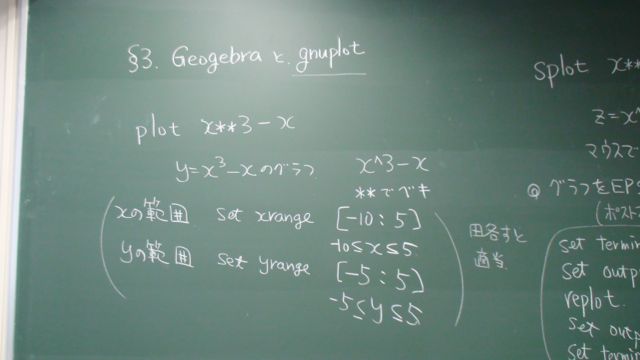 §3. Geogebra と gnuplot
plot x**3-x
y=x³-xのグラフ x^3-x
**でベキ
xの範囲 set xrange [-10:5]
-10≤x≤5
yの範囲 set yrange [-5:5]
-5≤y≤5
略すと
適当
splot x**
z=x^
マウスで
グラフをEPS
(ポスト
set termin
set outp
replot
set outp
set termin